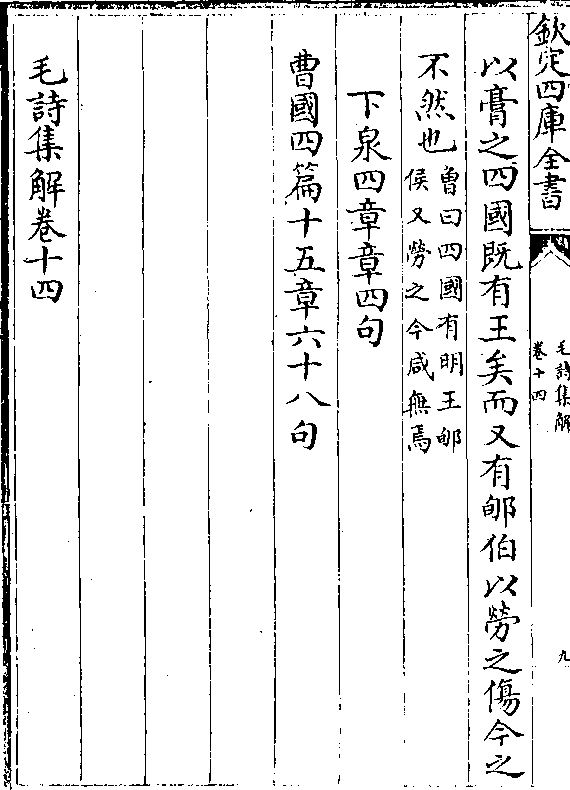 欽定四庫全書
毛詩集解
卷十四
九
以膏之四國既有王矣而又有郇伯以勞之傷今之
不然也
曹曰四國有明王郇
侯又勞之今咸無焉
下泉四章章四句
曹國四篇十五章六十八句
毛詩集解卷十四